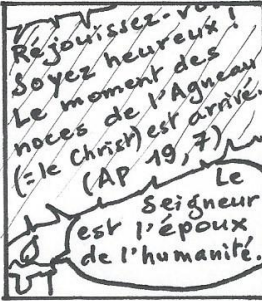 Réjouissez-vous !
Soyez heureux !
Le moment des
noces de l'Agneau
(= le Christ) est arrivé.
(AP 19, 7)
Le
Seigneur
est l'époux
de l'humanité.